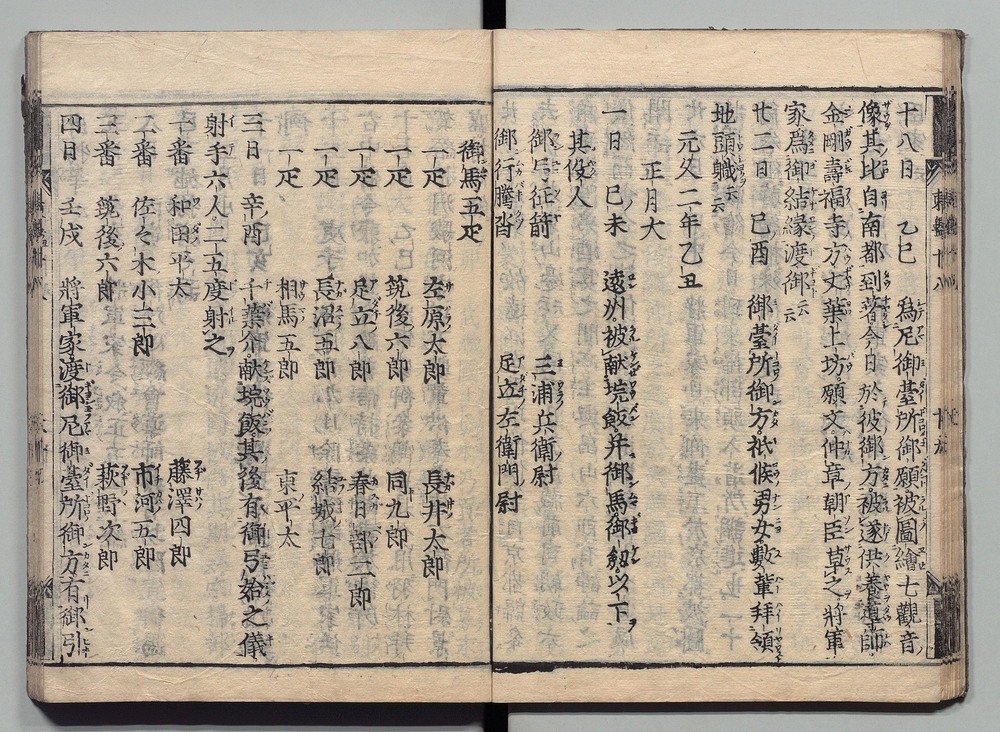 十八日　乙巳　爲尼御臺所御願被圖繪七觀音
像其比自南都到著今日於彼御方被遂供養導師
金剛壽福寺方丈葉上坊願文仲章朝臣草之將軍
家爲御結縁渡御云云
廿二日　己酉　御臺所御方祇候男女數輩拜領
地頭職云云
元久二年乙丑
正月大
一日　己未　遠州被献垸飯并御馬御剱以下
其役人
御弓征箭　三浦兵衛尉
御行騰沓　足立左衛門尉
御馬五疋
一疋　左原太郎　長井太郎
一疋　筑後六郎　同九郎
一疋　足立八郎　春日部二郎
一疋　長沼五郎　結城七郎
一疋　相馬五郎　東平太
三日　辛酉　千葉介献垸飯其後有御弓始之儀
射手六人二五度射之
一番　和田平太　藤澤四郎
二番　佐々木小三郎　市河五郎
三番　筑後六郎　萩野次郎
四日　壬戌　將軍家渡御尼御臺所御方有御引